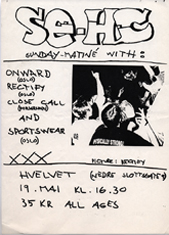 SE-HC
SUNDAY-MATINÉ WITH:
ONWARD
(OSLO)
RECTIFY
(OSLO)
CLOSE CALL
AND
SPORTSWEAR
(OSLO)
XXX
HVELVET
19. MAI KL. 16.30
35 KR ALL AGES